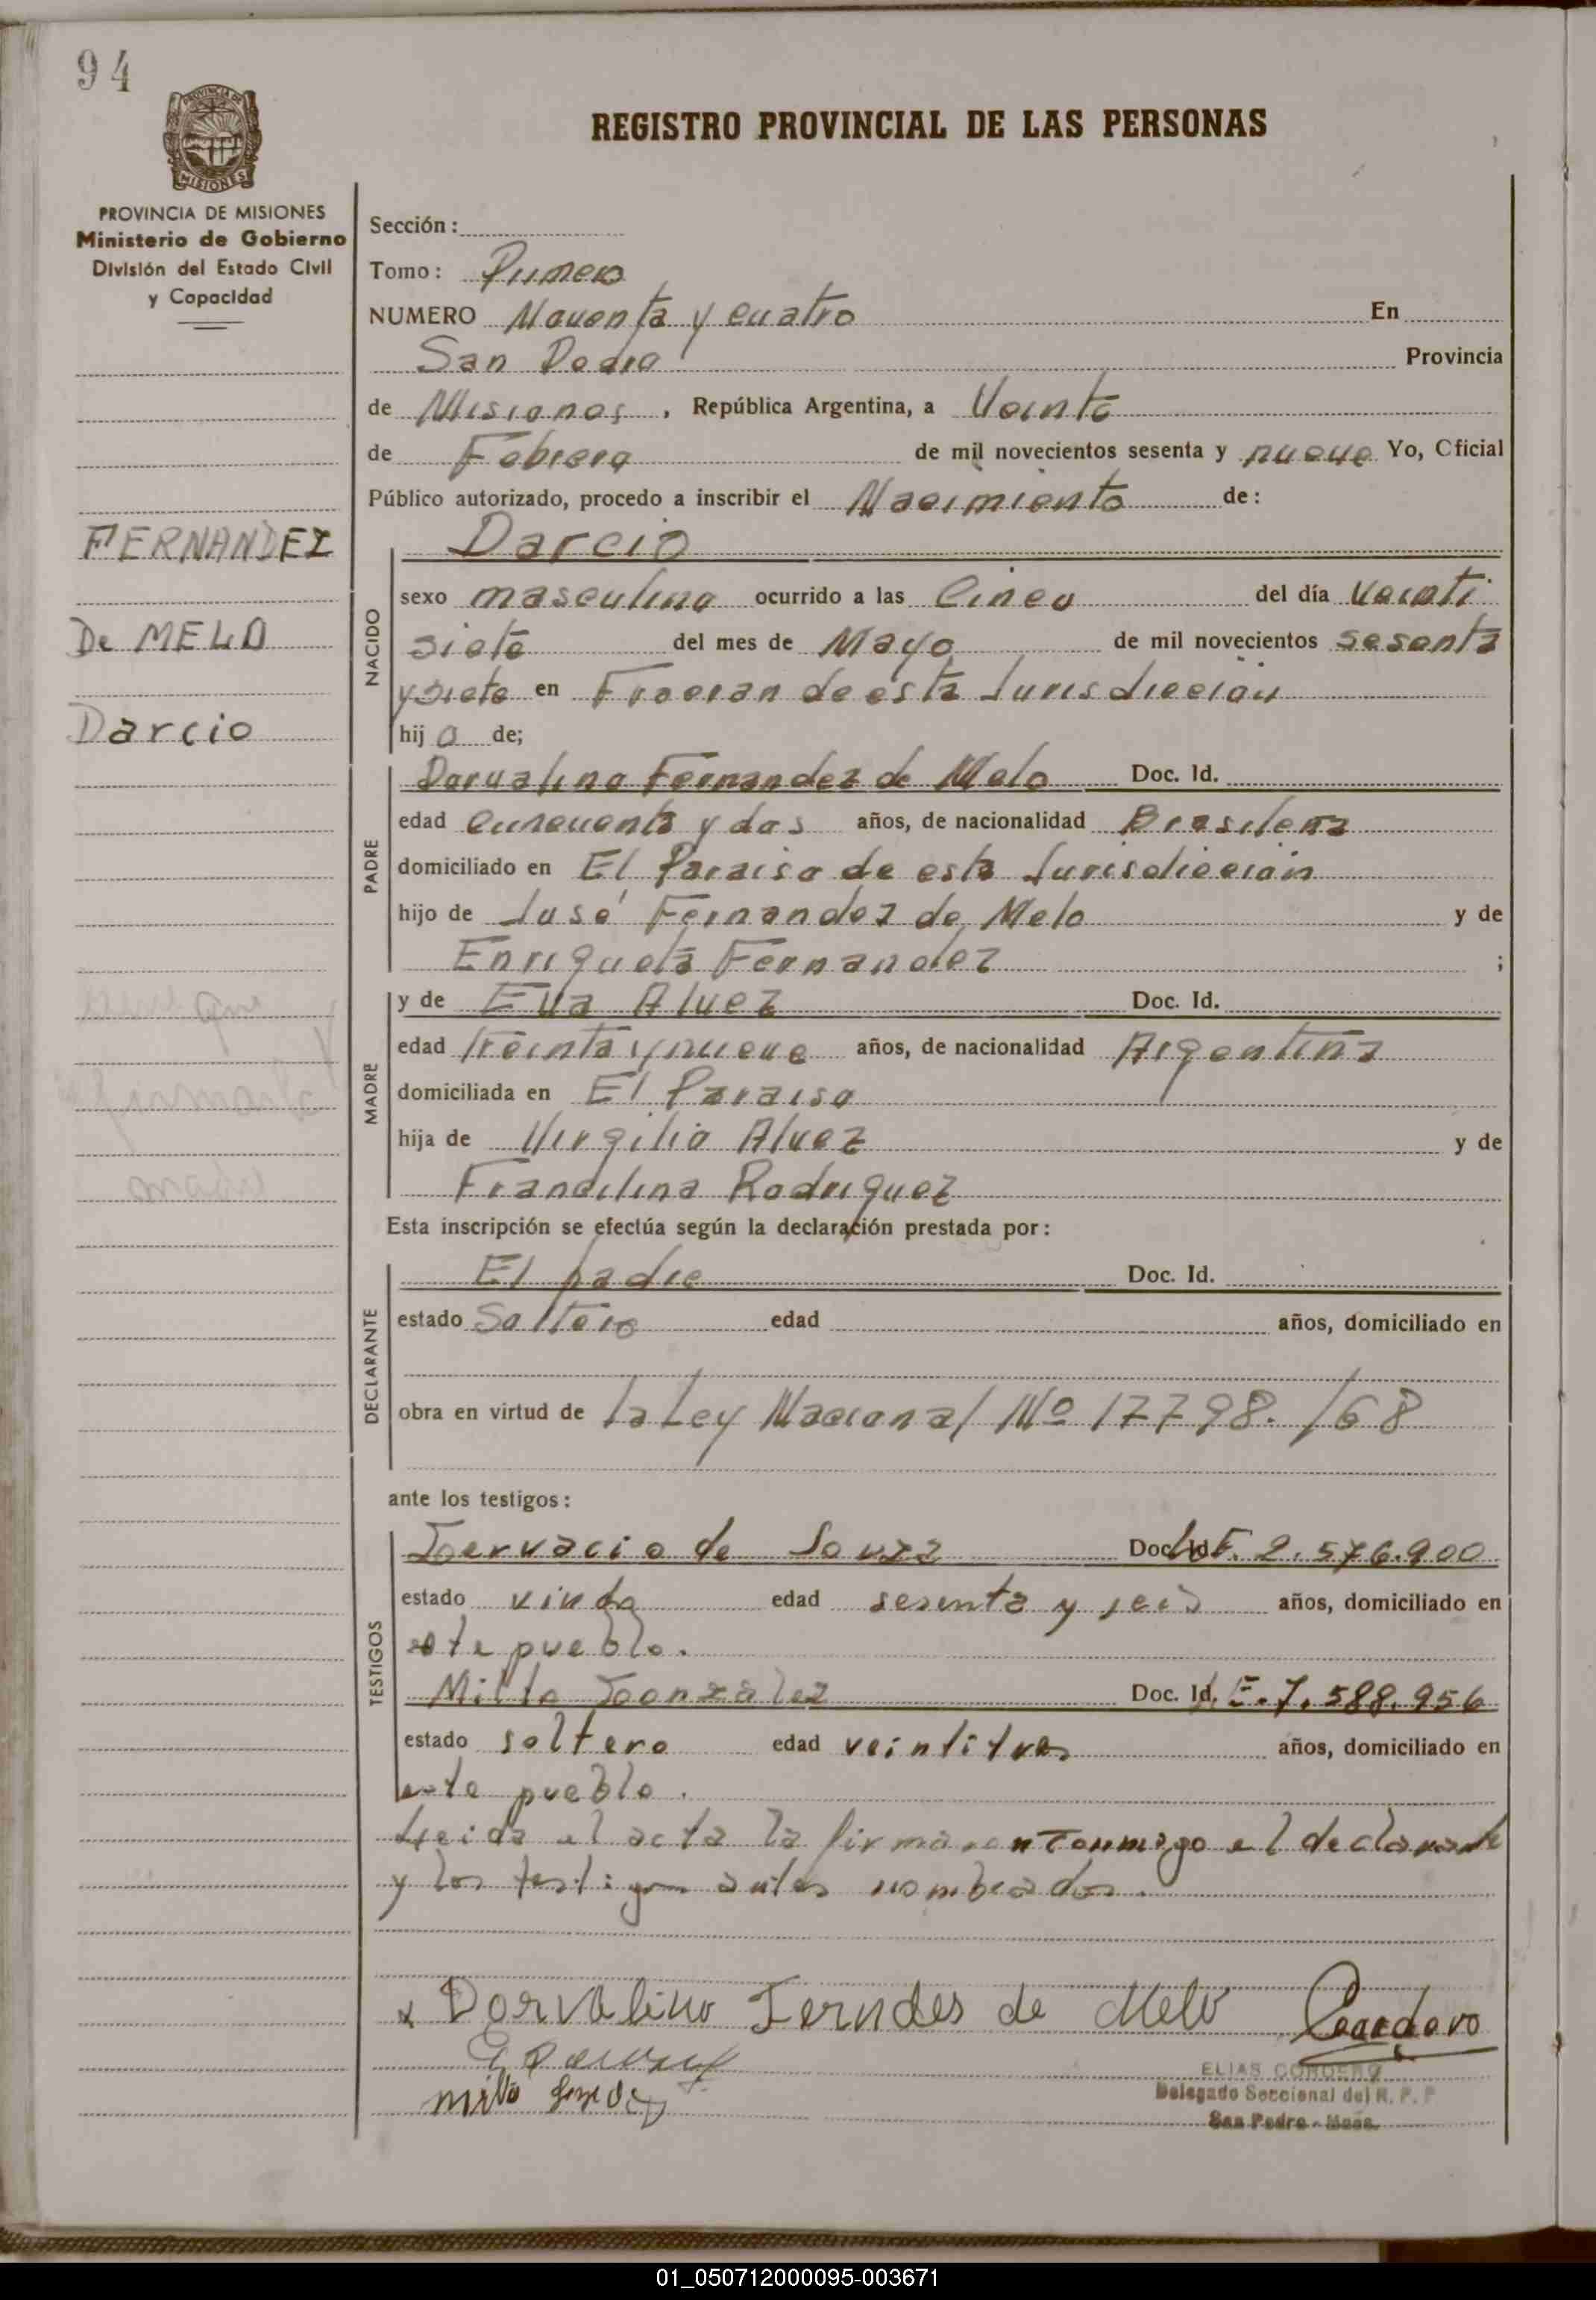 94
PROVINCIA DE MISIONES
REGISTRO PROVINCIAL DE LAS PERSONAS
PROVINCIA DE MISIONES
Ministerio de Gobierno
División del Estado Civil
y Capacidad
Sección:
Tomo: Primero
NUMERO Noventa y cuatro En
San Pedro Provincia
de Misiones, República Argentina, a Veinte
de Febrero de mil novecientos sesenta y nueve Yo, Oficial
Público autorizado, procedo a inscribir el Nacimiento de:
FERNANDEZ
De MELO
Darcio
NACIDO
Darcio
sexo masculino ocurrido a las Cinco del día Veinti
siete del mes de Mayo de mil novecientos sesenta
y siete en Fracran de esta Jurisdicción
hij o de;
PADRE
Dorvalino Fernandez de Melo Doc. Id.
edad cincuenta y dos años, de nacionalidad Brasilera
domiciliado en El Paraiso de esta Jurisdicción
hijo de José Fernandez de Melo y de
Enriqueta Fernandez ;
MADRE
y de Eva Alvez Doc. Id.
edad treinta y nueve años, de nacionalidad Argentina
domiciliada en El Paraiso
hija de Virgilio Alvez y de
Francilina Rodriguez
Esta inscripción se efectúa según la declaración prestada por:
DECLARANTE
El padre Doc. Id.
estado Soltero edad años, domiciliado en
obra en virtud de la Ley Nacional Nº 17798./68
ante los testigos:
TESTIGOS
Gervacio de Souza Doc. Id. 2.576.900
estado viudo edad sesenta y seis años, domiciliado en
este pueblo.
Milto Gonzalez Doc. Id. E.7.588.956
estado soltero edad veintitres años, domiciliado en
este pueblo.
Leida el acta la firmaron conmigo el declarante
y los testigos antes nombrados.
x Dorvalino Ferndes de Melo
Cordero
ELIAS CORDERO
Delegado Seccional del R. P. P
San Pedro - Mnes.
01_050712000095-003671